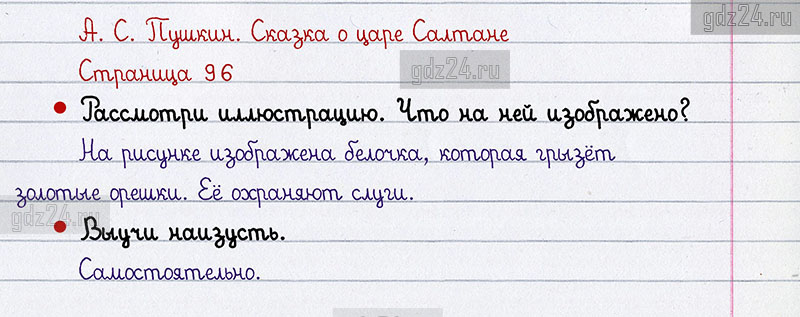 gdz24.ru
А. С. Пушкин. Сказка о царе Салтане
Страница 96
gdz24.ru
• Рассмотри иллюстрацию. Что на ней изображено?
На рисунке изображена белочка, которая грызёт
золотые орешки. Её охраняют слуги.
gdz24.ru
• Выучи наизусть.
Самостоятельно.